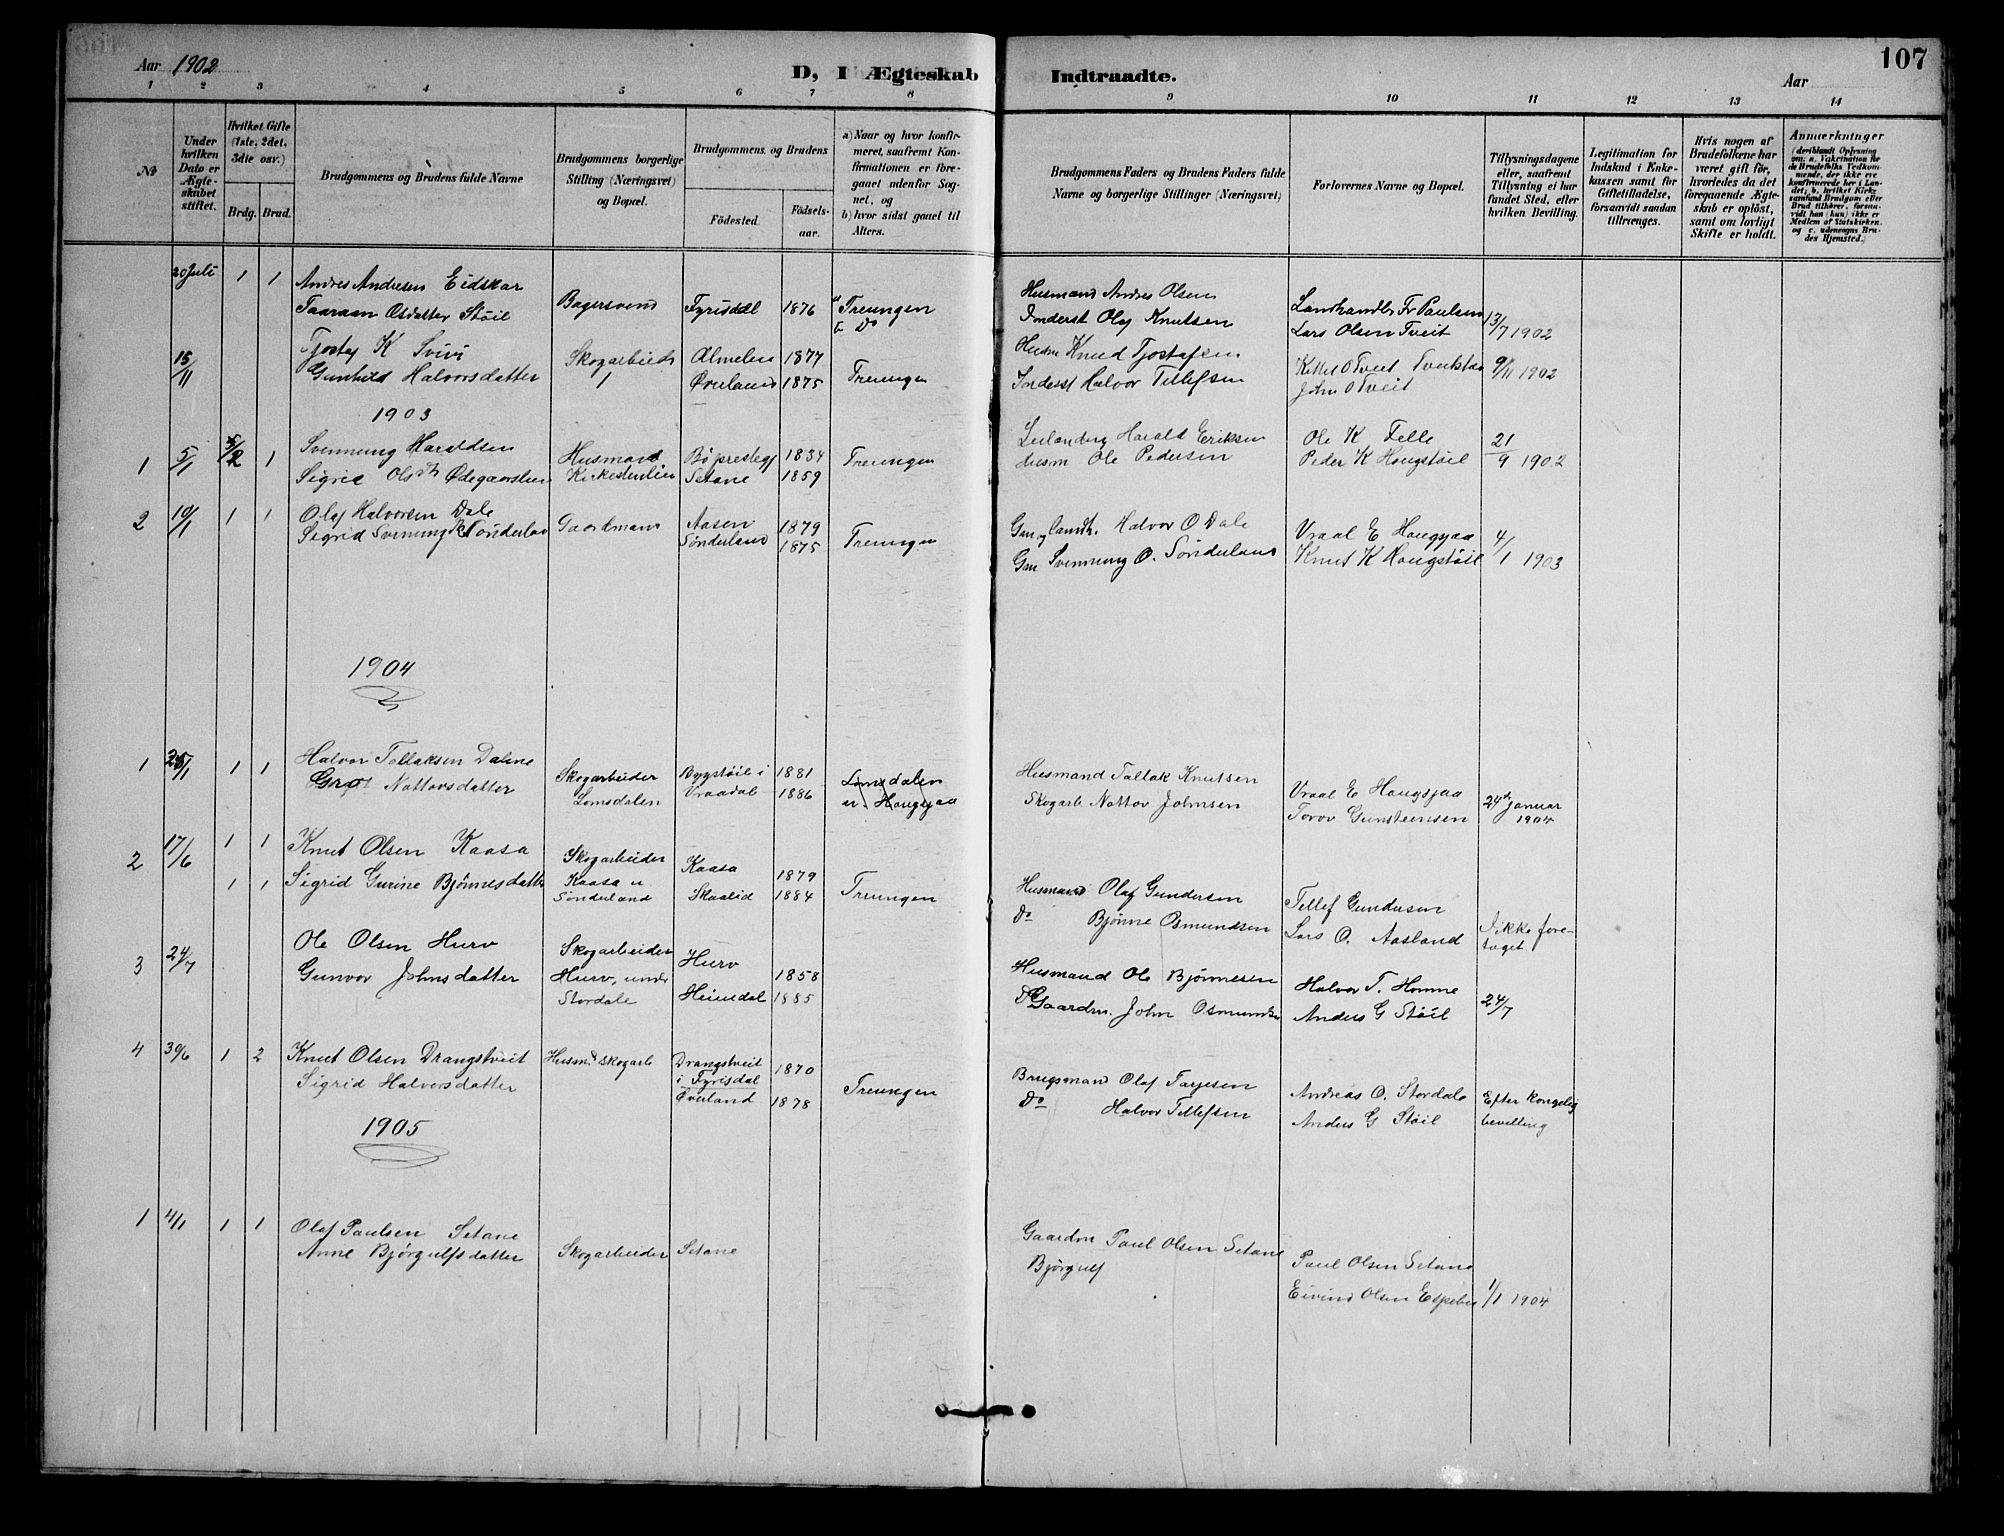 107
Aar 1902
D, I Ægteskab Indtraadte.
Aar
1 2 3 4 5 6 7 8 9 10 11 12 13 14
№
Under hvilken Dato er Ægteskabet stiftet.
Hvilket Gifte (1ste, 2det, 3die osv.)
Brdg. Brud.
Brudgommens og Brudens fulde Navne
Brudgommens borgerlige Stilling (Næringsvei) og Bopæl.
Brudgommens og Brudens
Födested.
Födselsaar.
a) Naar og hvor konfirmeret, saafremt Konfirmationen er foregaaet udenfor Sognet, og
b) hvor sidst gaaet til Alters.
Brudgommens Faders og Brudens Faders fulde Navne og borgerlige Stillinger (Næringsvei)
Forlovernes Navne og Bopæl.
Tillysningsdagene eller, saafremt Tillysning ei har fundet Sted, efter hvilken Bevilling.
Legitimation for Indskud i Enkekassen samt for Giftetilladelse, forsaavidt saadan tiltrænges.
Hvis nogen af Brudefolkene har været gift før, hvorledes da det foregaaende Ægteskab er oplöst, samt om lovligt Skifte er holdt.
Anmærkninger
(deriblandt Oplysning om: a. Vakcination for de Brudefolks Vedkommende, der ikke ere konfirmerede her i Landet; b. hvilket Kirkesamfund Brudgom eller Brud tilhörer, forsaavidt han (hun) ikke er Medlem af Statskirken, og c. udensogns Brudes Hjemsted.)
20 Juli 1 1 Andres Andresen Eidskar
Taaraan Olsdatter Støil Bagersvend Fyrisdal 1876 Treungen Do
Husmand Andres Olsen Landhandler Fr Paulsen
Inderst Olaf Knutsen Lars Olsen Tveit 13/7 1902
15/11 Tjostaf K Svivi Skogarbeider Almelien 1877
Gunhild Halvorsdatter Øverland 1875 Treungen
Knud Tjostafsen Kittel O Tveit 9/11 1902
Inderst Halvor Tellefsen John O Tveit
1903
1 5/1 2 1 Svennung Haraldsen Husmand Bø prestegj 1834
Sigrid Olsdtr Ødegaardslien Setane 1859 Treungen
Harald Eriksen Ole K Felle 21/9 1902
Husm Ole Pedersen Peder K Hougstøil
2 10/1 1 1 Olaf Halvorsen Dale Gaardmand Aasen 1879
Sigrid Svennung Sønderland Sønderland 1875 Treungen
Halvor O Dale Vraal E Hougsjaa 4/1 1903
Gm Svennung O. Sønderland Knut K Hougstøil
1904
1 1 1 Halvor Tellaksen Dalene Skogarbeider 1881
Notto\vsdatter Lomsdalen Vraadal 1886 Lomsdalen u. Hougsjaa
Husmand Tallak Knutsen Vraal E Hougsjaa 24de Januar 1904
Skogarb. Nottov Johnsen Torov Gunsteinsen
2 17/6 1 1 Knut Olsen Kaasa Skogarbeider Kaasa 1879
1 1 Sigrid Gurine Bjønnesdatter Kaasa u Sønderland Skaalid 1884 Treungen
Husmand Olaf Gundersen Tellef Gundersen Ikke foretaget
Do Bjønne Osmundsen Lars O. Aasland
3 24/7 Ole Olsen Hurv Skogarbeider Hurv 1858
Gunvor Johnsdatter Hurv, under Stordale Heimdal 1885
Husmand Ole Bjønnesen Halvor T. Homme 24/7
Gaardm. John Osmundsen Anders G Støil
4 30/6 1 2 Knut Olsen Drangstveit Husmd Skogarb Drangstveit i Fyrisdal 1870
Sigrid Halvorsdatter Øverland 1878 Treungen
Brugsmand Olaf Tarjesen Andreas O. Stordale Efter kongelig bevilling
Do Halvor Tellefsen Anders G Støil
1905
1 4/1 1 1 Olaf Paulsen Setane
Anne Bjørgulfsdatter Skogarbeider Setane
Gaardm Paul Olsen Setane Paul Olsen Setane
Bjørgulf Eivind Olsen 1/1 1904